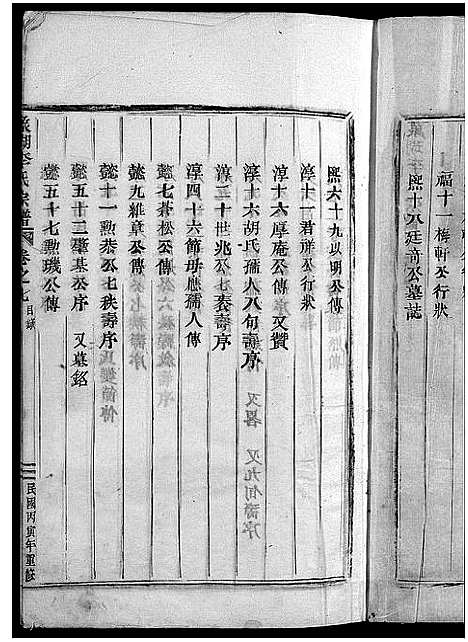 福十一梅軒公行狀
熙十八廷奇公墓誌
熙六十九以明公傳
淳十一君祥公行狀
淳十六厚庵公傳又贊
淳十六胡氏孺人八旬壽序 又畧 又九旬壽序
淳二十世兆公七袠壽序
淳四十六節母應孺人傳
懿七蒼松公傳
懿九維章公傳
懿十一勲恭公七秩壽序
懿五十三肇基公序 又墓銘
懿五十七勲璣公傳
李氏宗譜 卷之九 目錄
民國丙寅年重修